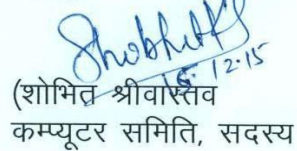 ShobhitKS
15.12.15
(शोभित श्रीवास्तव
कम्प्यूटर समिति, सदस्य